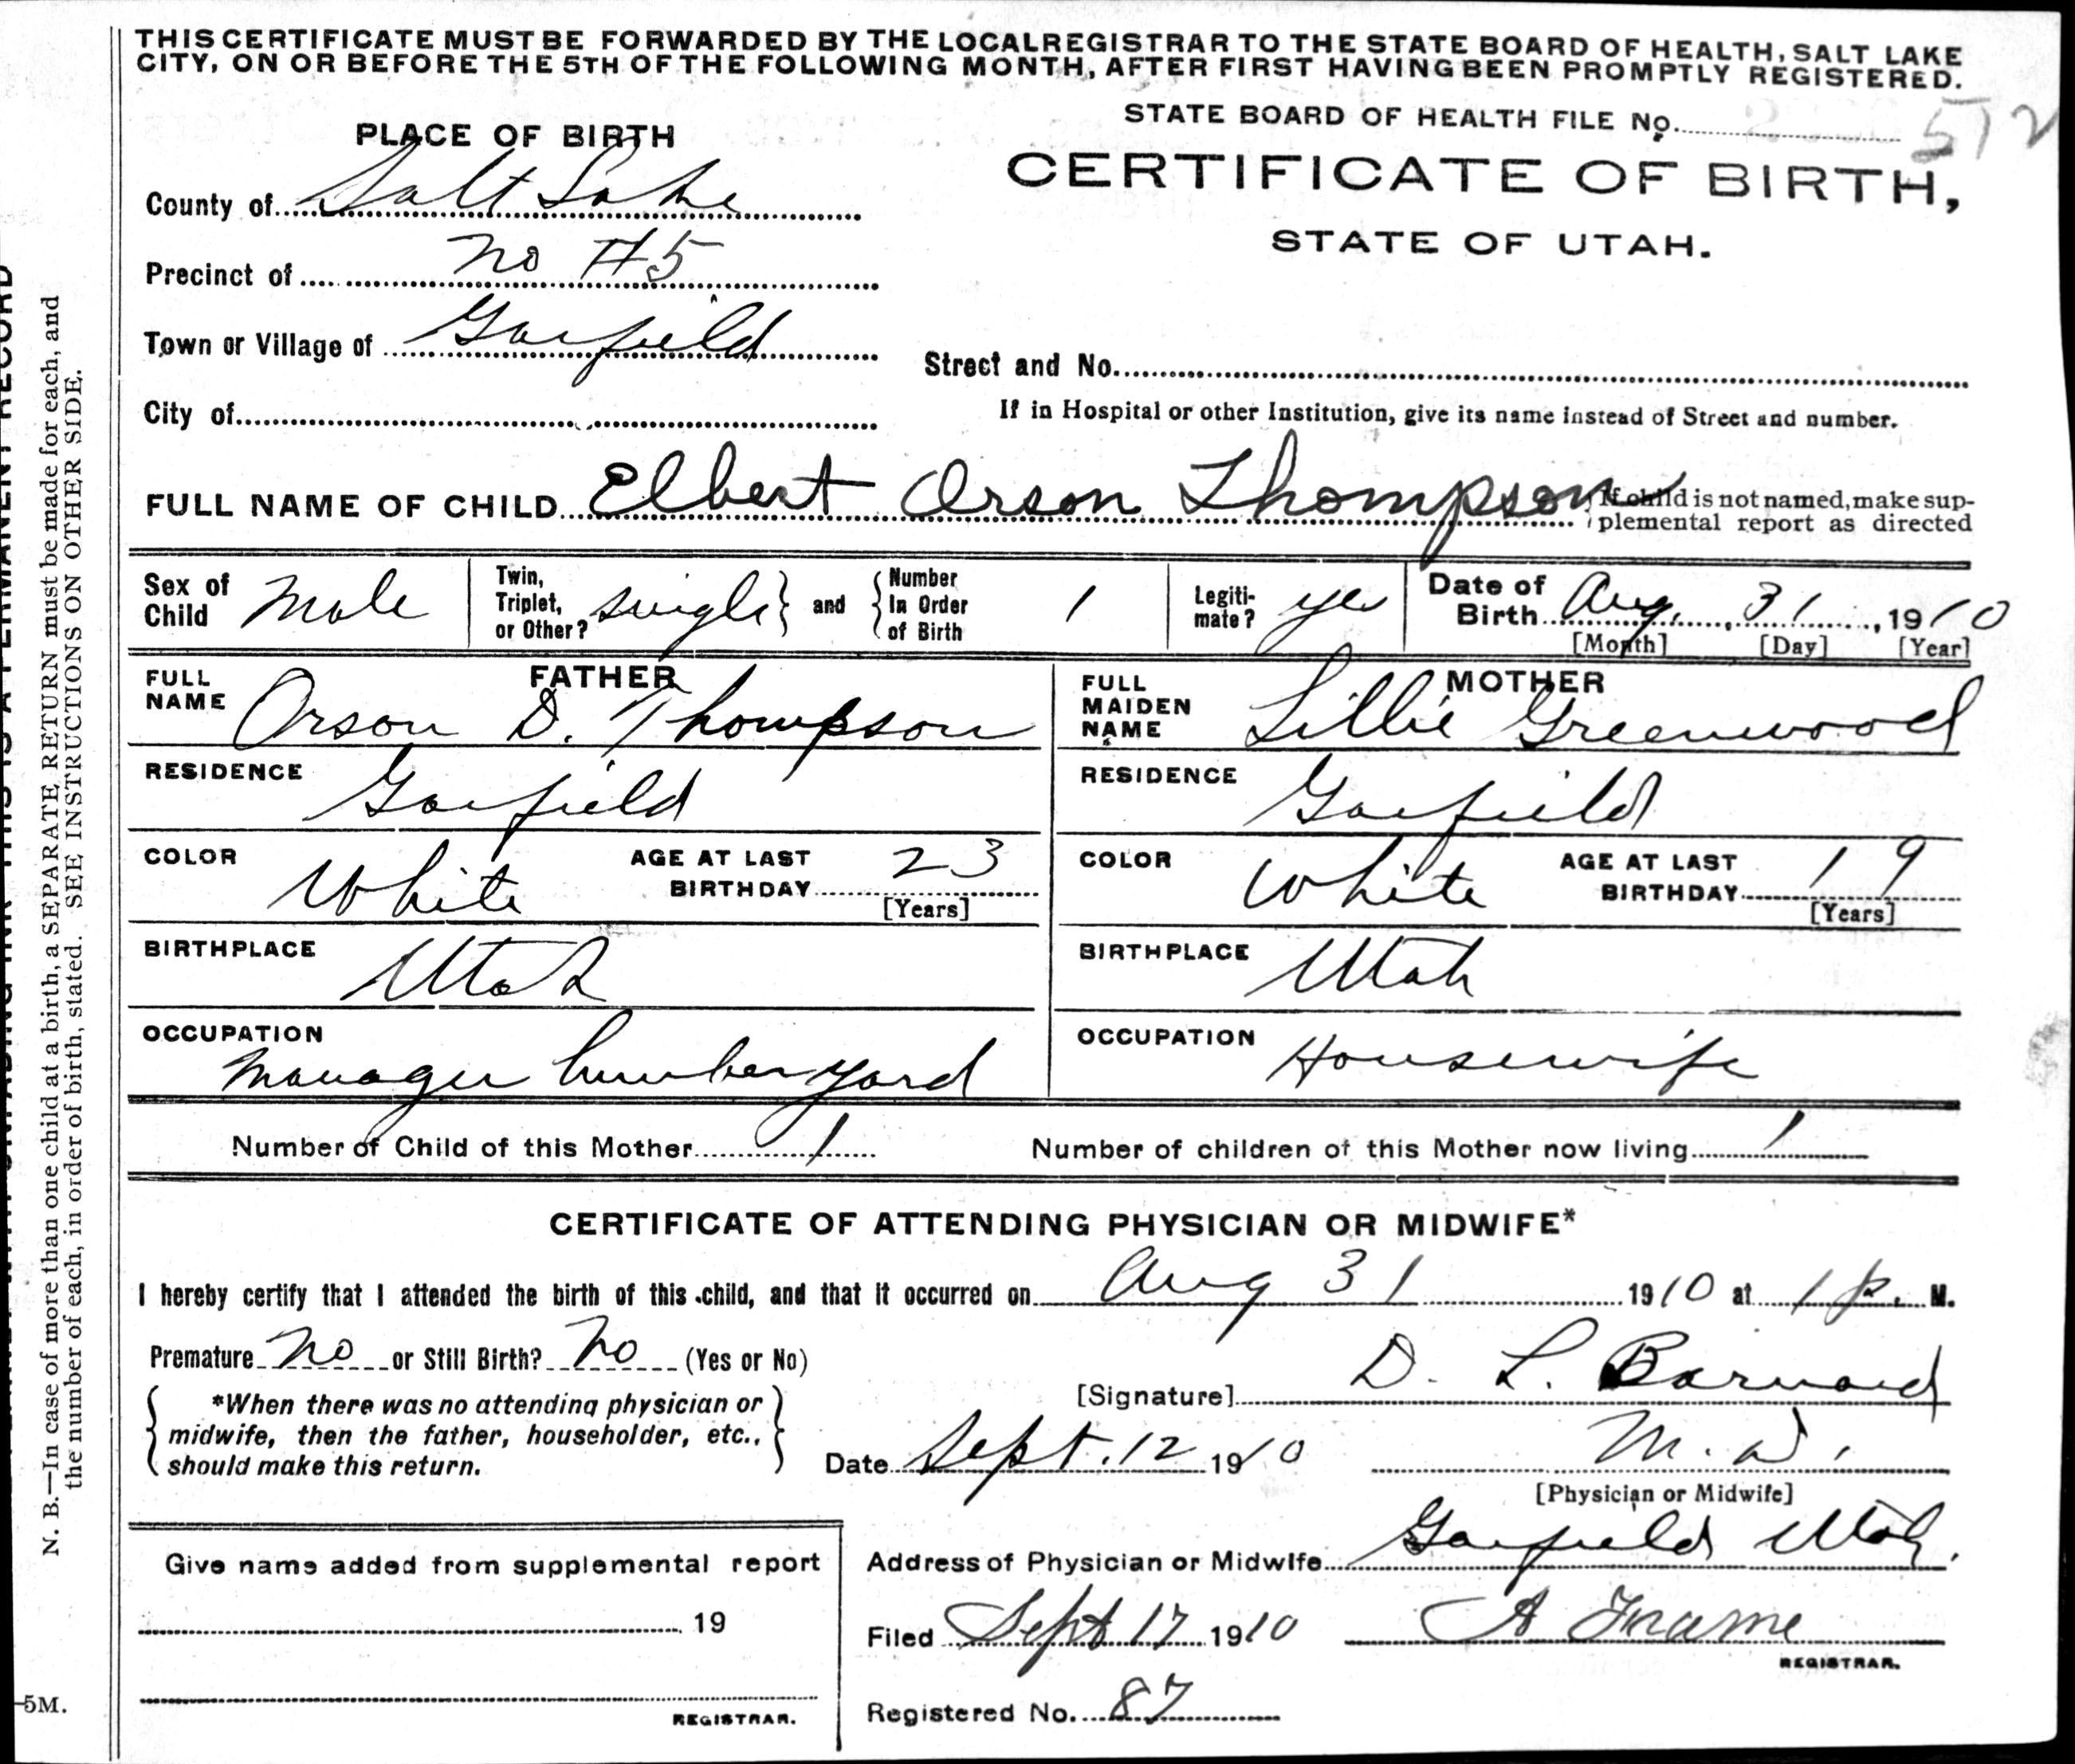 THIS CERTIFICATE MUST BE FORWARDED BY THE LOCAL REGISTRAR TO THE STATE BOARD OF HEALTH, SALT LAKE
CITY, ON OR BEFORE THE 5TH OF THE FOLLOWING MONTH, AFTER FIRST HAVING BEEN PROMPTLY REGISTERED.
STATE BOARD OF HEALTH FILE No. 512
PLACE OF BIRTH
CERTIFICATE OF BIRTH,
STATE OF UTAH.
County of Salt Lake
Precinct of No 45
Town or Village of Garfield
Street and No.
City of
If in Hospital or other Institution, give its name instead of Street and number.
FULL NAME OF CHILD Elbert Orson Thompson
If child is not named, make sup-
plemental report as directed
Sex of Child Male
Twin, Triplet, or Other? single
and Number In Order of Birth 1
Legiti-mate? yes
Date of Birth Aug. 31, 1910
[Month] [Day] [Year]
FATHER
FULL NAME Orson D. Thompson
RESIDENCE Garfield
COLOR White AGE AT LAST BIRTHDAY 23
[Years]
BIRTHPLACE Utah
OCCUPATION Manager lumber yard
MOTHER
FULL MAIDEN NAME Lillie Greenwood
RESIDENCE Garfield
COLOR White AGE AT LAST BIRTHDAY 19
[Years]
BIRTHPLACE Utah
OCCUPATION Housewife
Number of Child of this Mother 1 Number of children of this Mother now living 1
CERTIFICATE OF ATTENDING PHYSICIAN OR MIDWIFE*
I hereby certify that I attended the birth of this child, and that it occurred on Aug 31 1910 at 1 P. M.
Premature No or Still Birth? No (Yes or No)
[Signature] D. L. Barnard
*When there was no attending physician or
midwife, then the father, householder, etc.,
should make this return.
Date Sept. 12 1910 M.D.
[Physician or Midwife]
Address of Physician or Midwife Garfield Utah.
Give name added from supplemental report
19
REGISTRAR.
Filed Sept 17 1910 A
REGISTRAR.
Registered No. 87
N. B.—In case of more than one child at a birth, a SEPARATE RETURN must be made for each, and
the number of each, in order of birth, stated. SEE INSTRUCTIONS ON OTHER SIDE.
-5M.